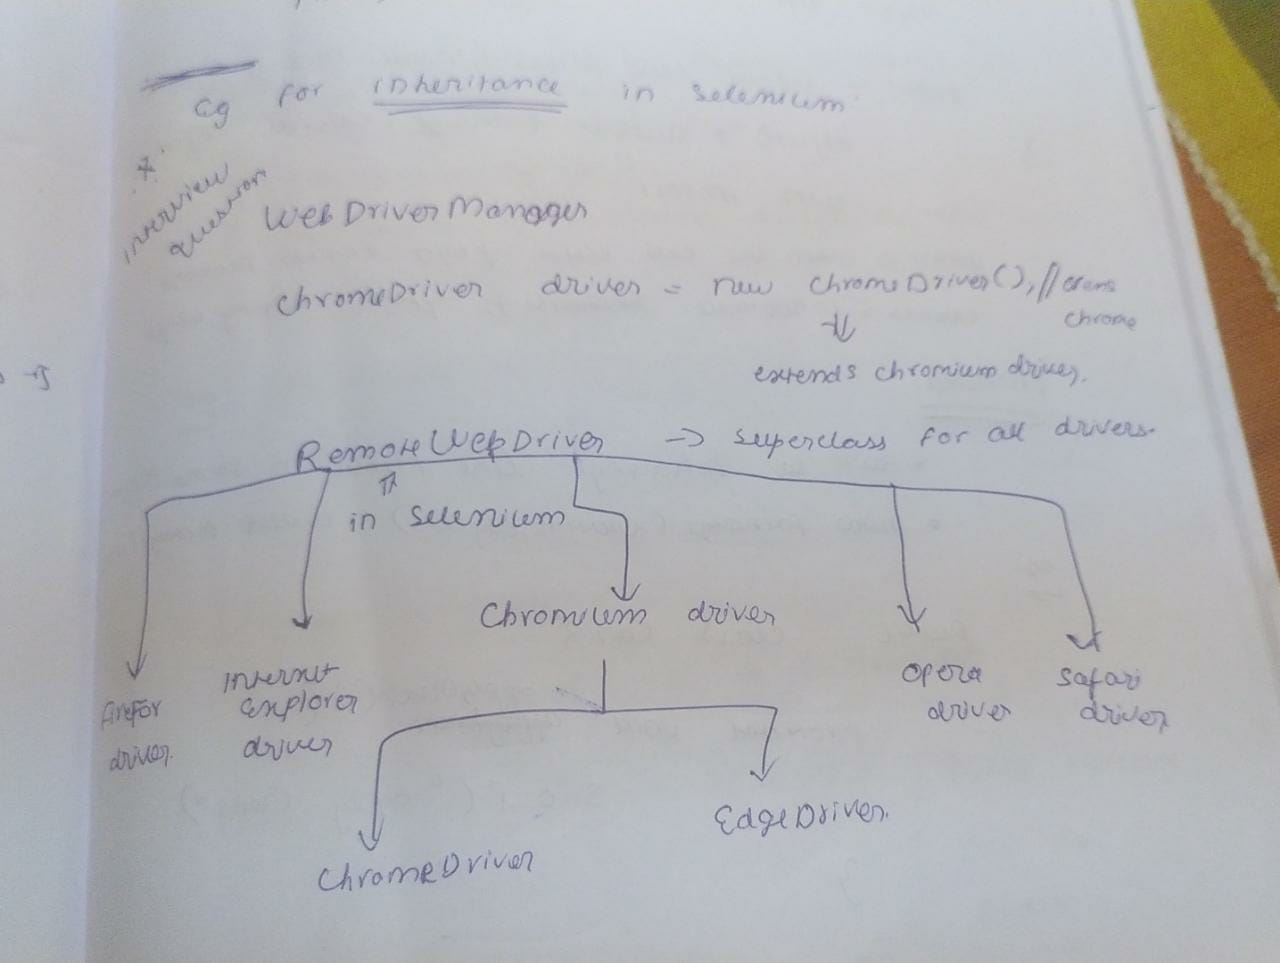 Eg for inheritance in selenium
*
interview question
WebDriverManager
chromeDriver driver = new chromeDriver(); // opens
chrome
extends chromium driver.
RemoteWebDriver → superclass for all drivers.
in selenium
Chromium driver
Internet Explorer driver
Opera driver
Safari driver
driver.
ChromeDriver
EdgeDriver.